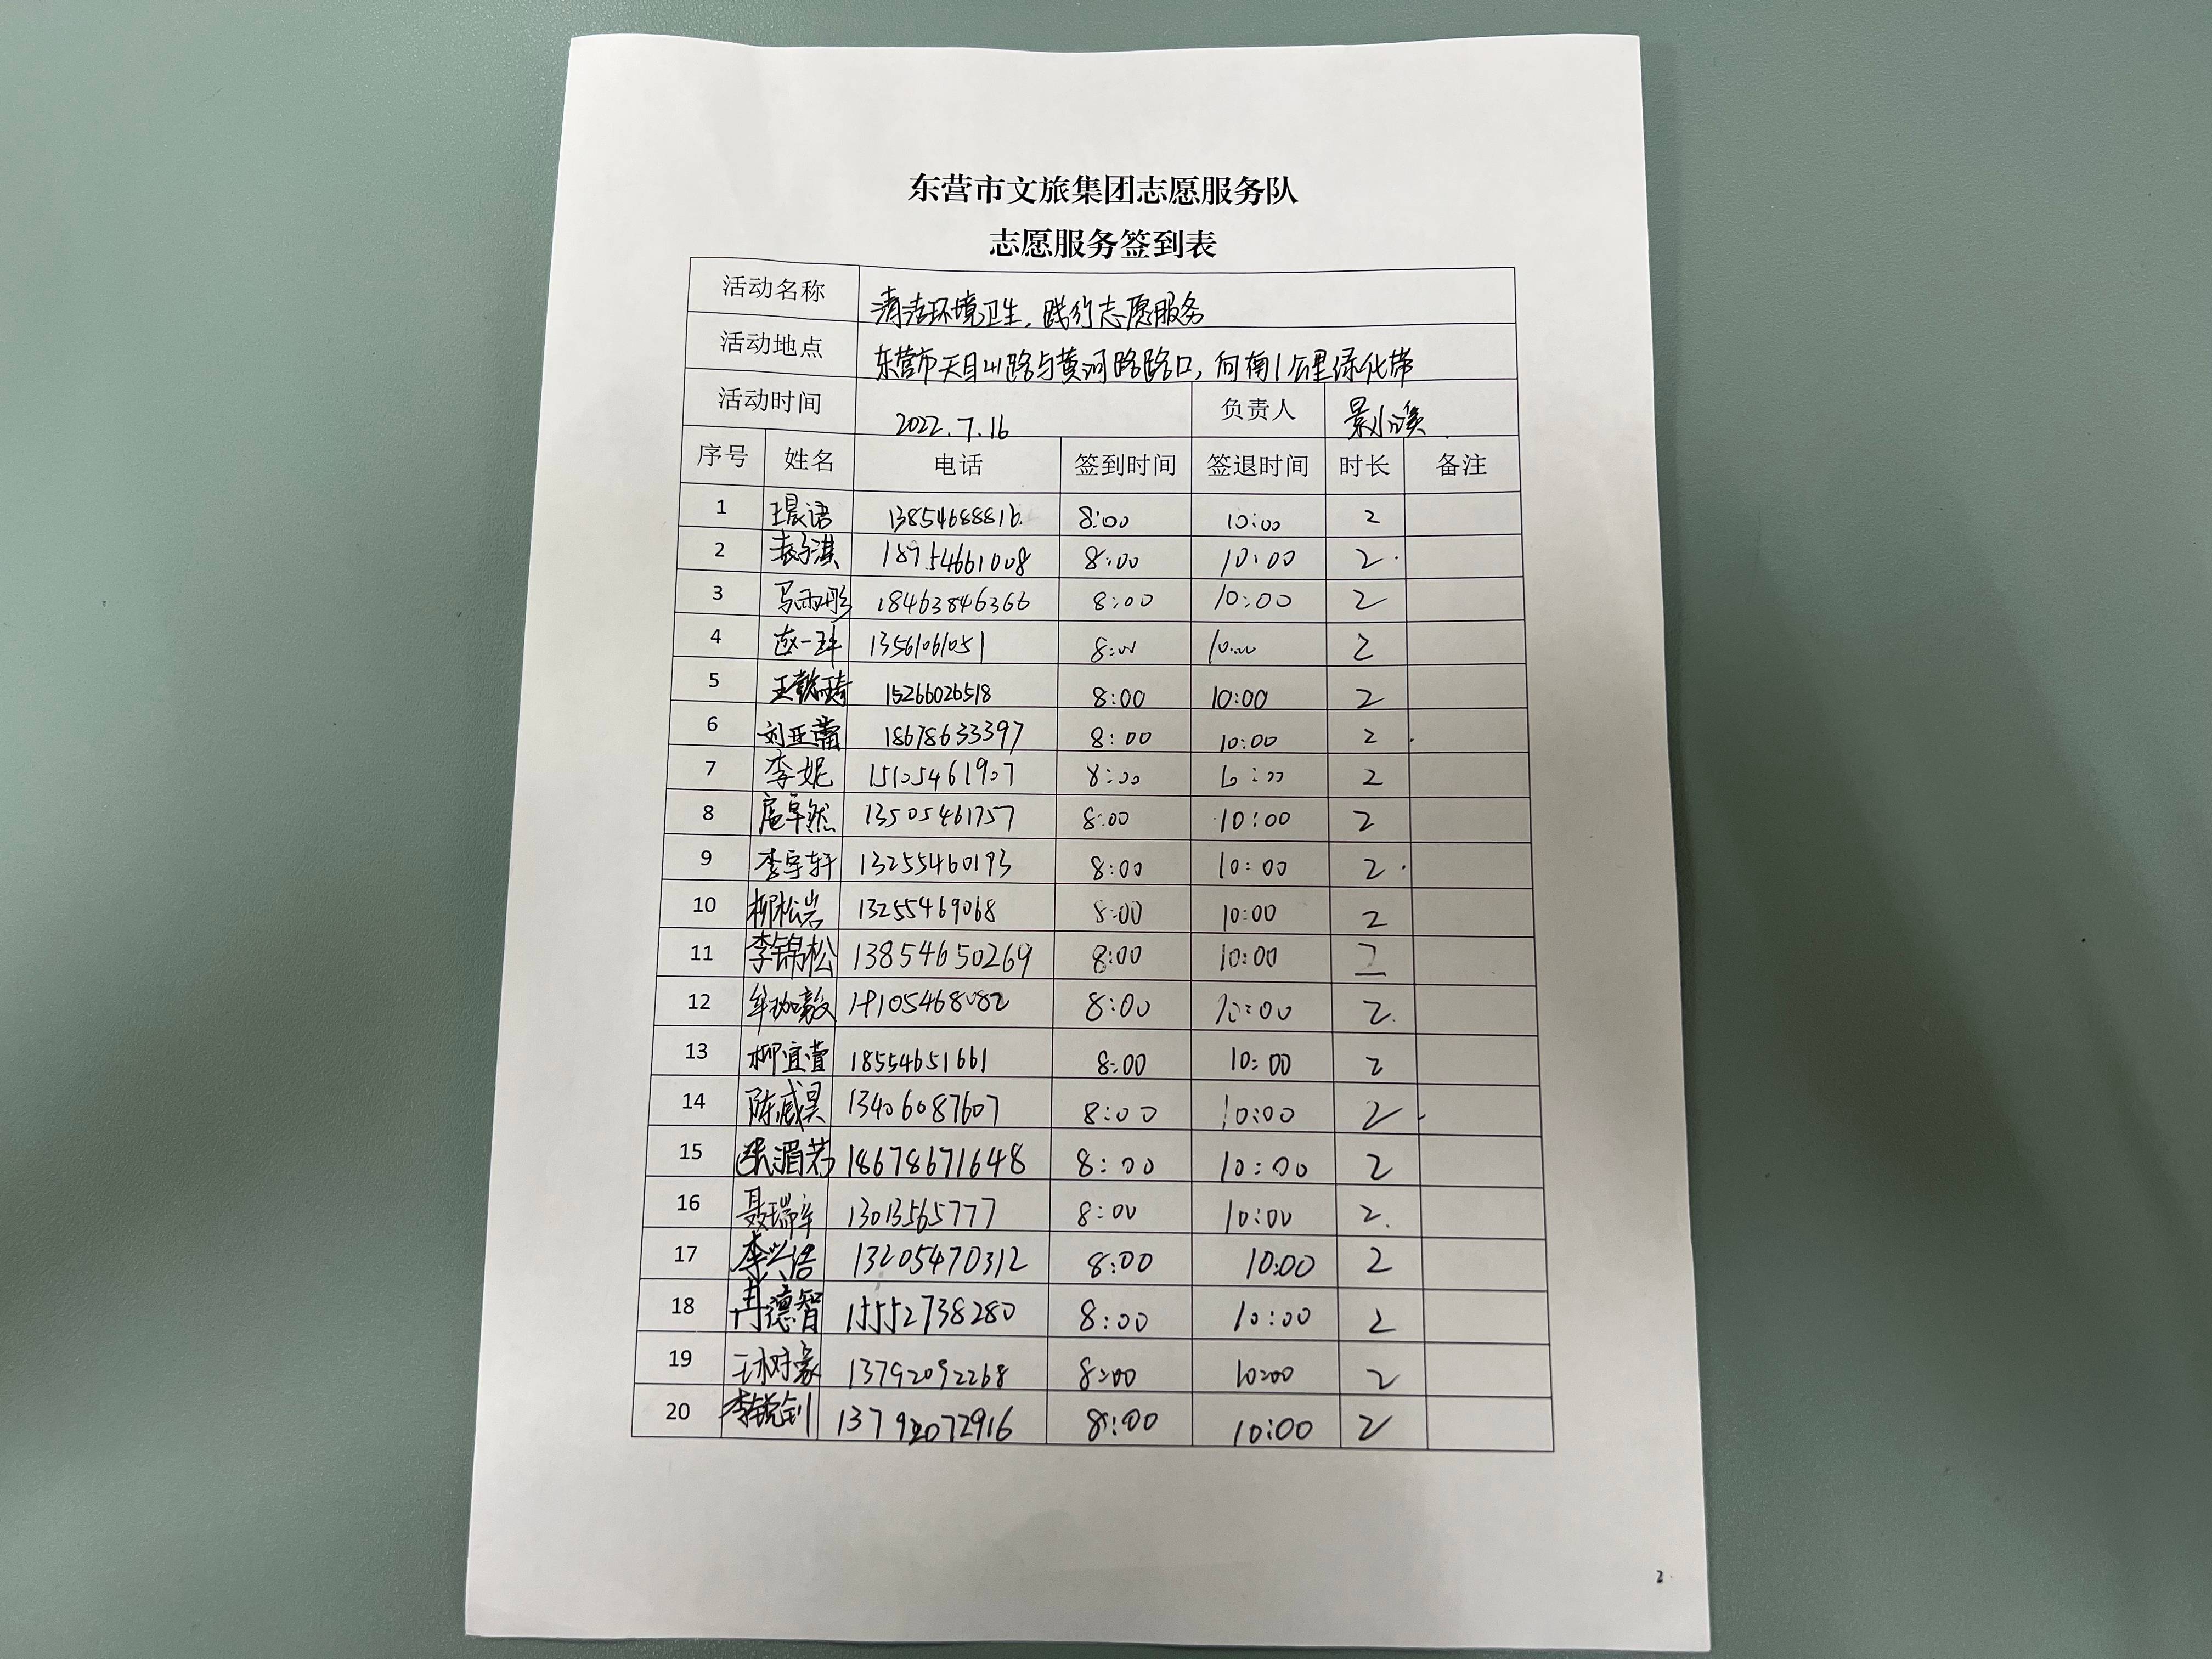 东营市文旅集团志愿服务队
志愿服务签到表
活动名称 清洁环境卫生，践行志愿服务
活动地点 东营市天目山路与黄河路路口，向南1公里绿化带
活动时间 2022.7.16 负责人 景小溪
序号 姓名 电话 签到时间 签退时间 时长 备注
1 王晨语 13854688816 8:00 10:00 2
2 袁子淇 18954661008 8:00 10:00 2
3 马雨彤 18463846366 8:00 10:00 2
4 赵一 13561061051 8:00 10:00 2
5 王懿琦 15266026518 8:00 10:00 2
6 刘亚蕾 18678633397 8:00 10:00 2
7 李妮 15105461907 8:00 10:00 2
8 扈卓然 13505461757 8:00 10:00 2
9 李宇轩 13255460193 8:00 10:00 2
10 柳松岩 13255469068 8:00 10:00 2
11 李锦松 13854650269 8:00 10:00 2
12 8:00 10:00 2
13 柳宜萱 18554651661 8:00 10:00 2
14 陈威昊 13406087607 8:00 10:00 2
15 张湄若 18678671648 8:00 10:00 2
16 聂瑞 13013565777 8:00 10:00 2
17 李兴浩 13205470312 8:00 10:00 2
18 冉德智 15552738280 8:00 10:00 2
19 王树豪 13792092268 8:00 10:00 2
20 李锐钊 13792072916 8:00 10:00 2
2